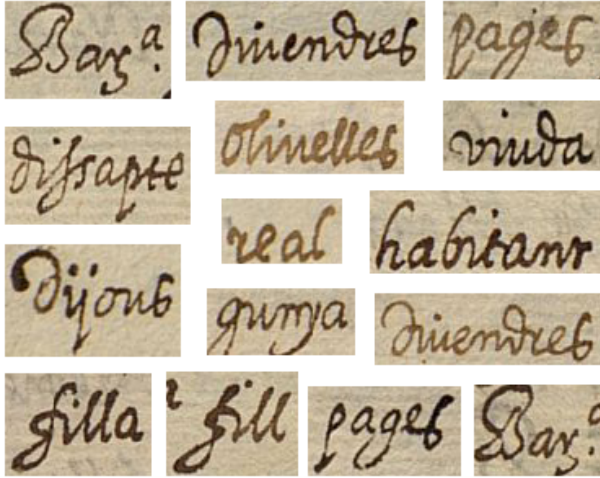 Bar.ª Diuendres pages
dissapte Oliuelles viuda
real habitant
dijous gunya Diuendres
filla fill pages Bar.ª